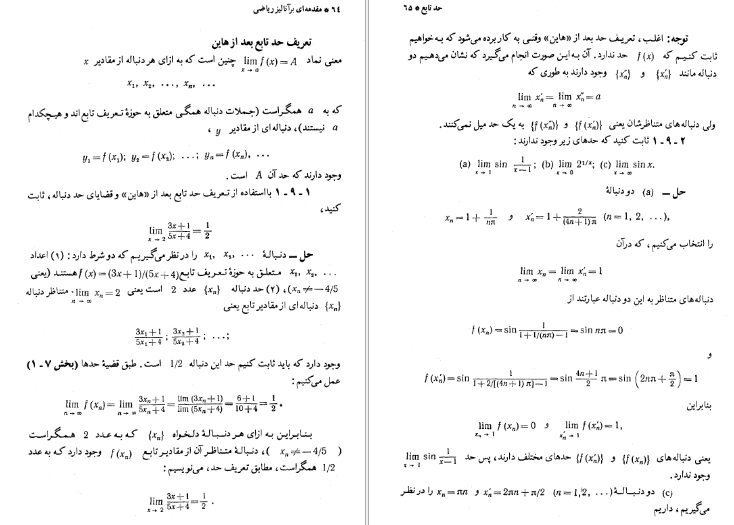 ۶۴ * مقدمه‌ای بر آنالیز ریاضی
تعریف حد تابع بعد از هاین
معنی نماد lim f(x) = A چنین است که به ازای هر دنباله از مقادیر x
x→a
x₁, x₂, ..., xₙ, ...
که به a همگراست (جملات دنباله همگی متعلق به حوزهٔ تعریف تابع‌اند و هیچکدام
a نیستند)، دنباله‌ای از مقادیر y،
y₁=f(x₁); y₂=f(x₂); ...; yₙ=f(xₙ), ...
وجود دارند که حد آن A است.
۱ - ۹ - ۱ با استفاده از تعریف حد تابع بعد از «هاین» و قضایای حد دنباله، ثابت
کنید،
lim (3x+1)/(5x+4) = 1/2
x→2
حل – دنبالهٔ x₁, x₂, ... را در نظر می‌گیریم که دو شرط دارد: (۱) اعداد
x₁, x₂, ... متعلق به حوزهٔ تعریف تابع f(x)=(3x+1)/(5x+4) هستند (یعنی
xₙ≠−4/5)، (۲) حد دنباله {xₙ} عدد 2 است یعنی lim xₙ=2. متناظر دنباله
n→∞
{xₙ} دنباله‌ای از مقادیر تابع یعنی
(3x₁+1)/(5x₁+4); (3x₂+1)/(5x₂+4); ...;
وجود دارد که باید ثابت کنیم حد این دنباله 1/2 است. طبق قضیهٔ حدها (بخش ۷ - ۱)
عمل می‌کنیم:
lim f(xₙ) = lim (3xₙ+1)/(5xₙ+4) = lim (3xₙ+1)/lim (5xₙ+4) = (6+1)/(10+4) = 1/2.
n→∞ n→∞
بنابراین به ازای هر دنبالهٔ دلخواه {xₙ} که به عدد 2 همگراست
(xₙ≠−4/5)، دنبالهٔ متناظر آن از مقادیر تابع f(xₙ) وجود دارد که به عدد
1/2 همگراست، مطابق تعریف حد، می‌نویسیم:
lim (3x+1)/(5x+4) = 1/2.
x→2
حد تابع * ۶۵
توجه: اغلب، تعریف حد بعد از «هاین» وقتی به کار برده می‌شود که بخواهیم
ثابت کنیم که f(x) حد ندارد. آن به این صورت انجام می‌گیرد که نشان می‌دهیم دو
دنباله مانند {x′ₙ} و {x″ₙ} وجود دارند به طوری که
lim x′ₙ = lim x″ₙ = a
n→∞ n→∞
ولی دنباله‌های متناظرشان یعنی {f(x′ₙ)} و {f(x″ₙ)} به یک حد میل نمی‌کنند.
۲ - ۹ - ۱ ثابت کنید که حدهای زیر وجود ندارند:
(a) lim sin 1/(x−1); (b) lim 2^(1/x); (c) lim sin x.
x→1 x→0 x→∞
حل – (a) دو دنبالهٔ
xₙ=1+1/(nπ) و x′ₙ=1+2/((4n+1)π) (n=1, 2, ...),
را انتخاب می‌کنیم، که در آن
lim xₙ = lim x′ₙ = 1
n→∞ n→∞
دنباله‌های متناظر به این دو دنباله عبارتند از
f(xₙ)=sin 1/(1+1/(nπ)−1)=sin nπ=0
و
f(x′ₙ)=sin 1/(1+2/[(4n+1)π]−1)=sin (4n+1)/2 π=sin (2nπ+π/2)=1
بنابراین
lim f(xₙ)=0 و lim f(x′ₙ)=1,
xₙ→1 x′ₙ→1
یعنی دنباله‌های {f(xₙ)} و {f(x′ₙ)} حدهای مختلف دارند، پس حد lim sin 1/(x−1)
x→1
وجود ندارد.
(c) دو دنبالهٔ xₙ=πn و x′ₙ=2πn+π/2 (n=1,2, ...) را در نظر
می‌گیریم، داریم